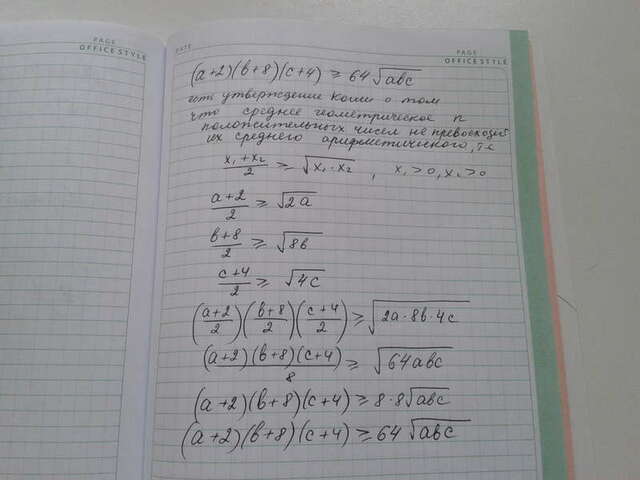 PAGE
OFFICE STYLE
DATE
PAGE
OFFICE STYLE
(a+2)(b+8)(c+4) ≥ 64√abc
есть утверждение Коши о том
что среднее геометрическое n
положительных чисел не превосходит
их среднего арифметичиного, т.е
(x₁+x₂)/2 ≥ √x₁·x₂, x₁>0, x₂>0
(a+2)/2 ≥ √2a
(b+8)/2 ≥ √8b
(c+4)/2 ≥ √4c
((a+2)/2)((b+8)/2)((c+4)/2) ≥ √2a·8b·4c
(a+2)(b+8)(c+4)/8 ≥ √64abc
(a+2)(b+8)(c+4) ≥ 8·8√abc
(a+2)(b+8)(c+4) ≥ 64√abc